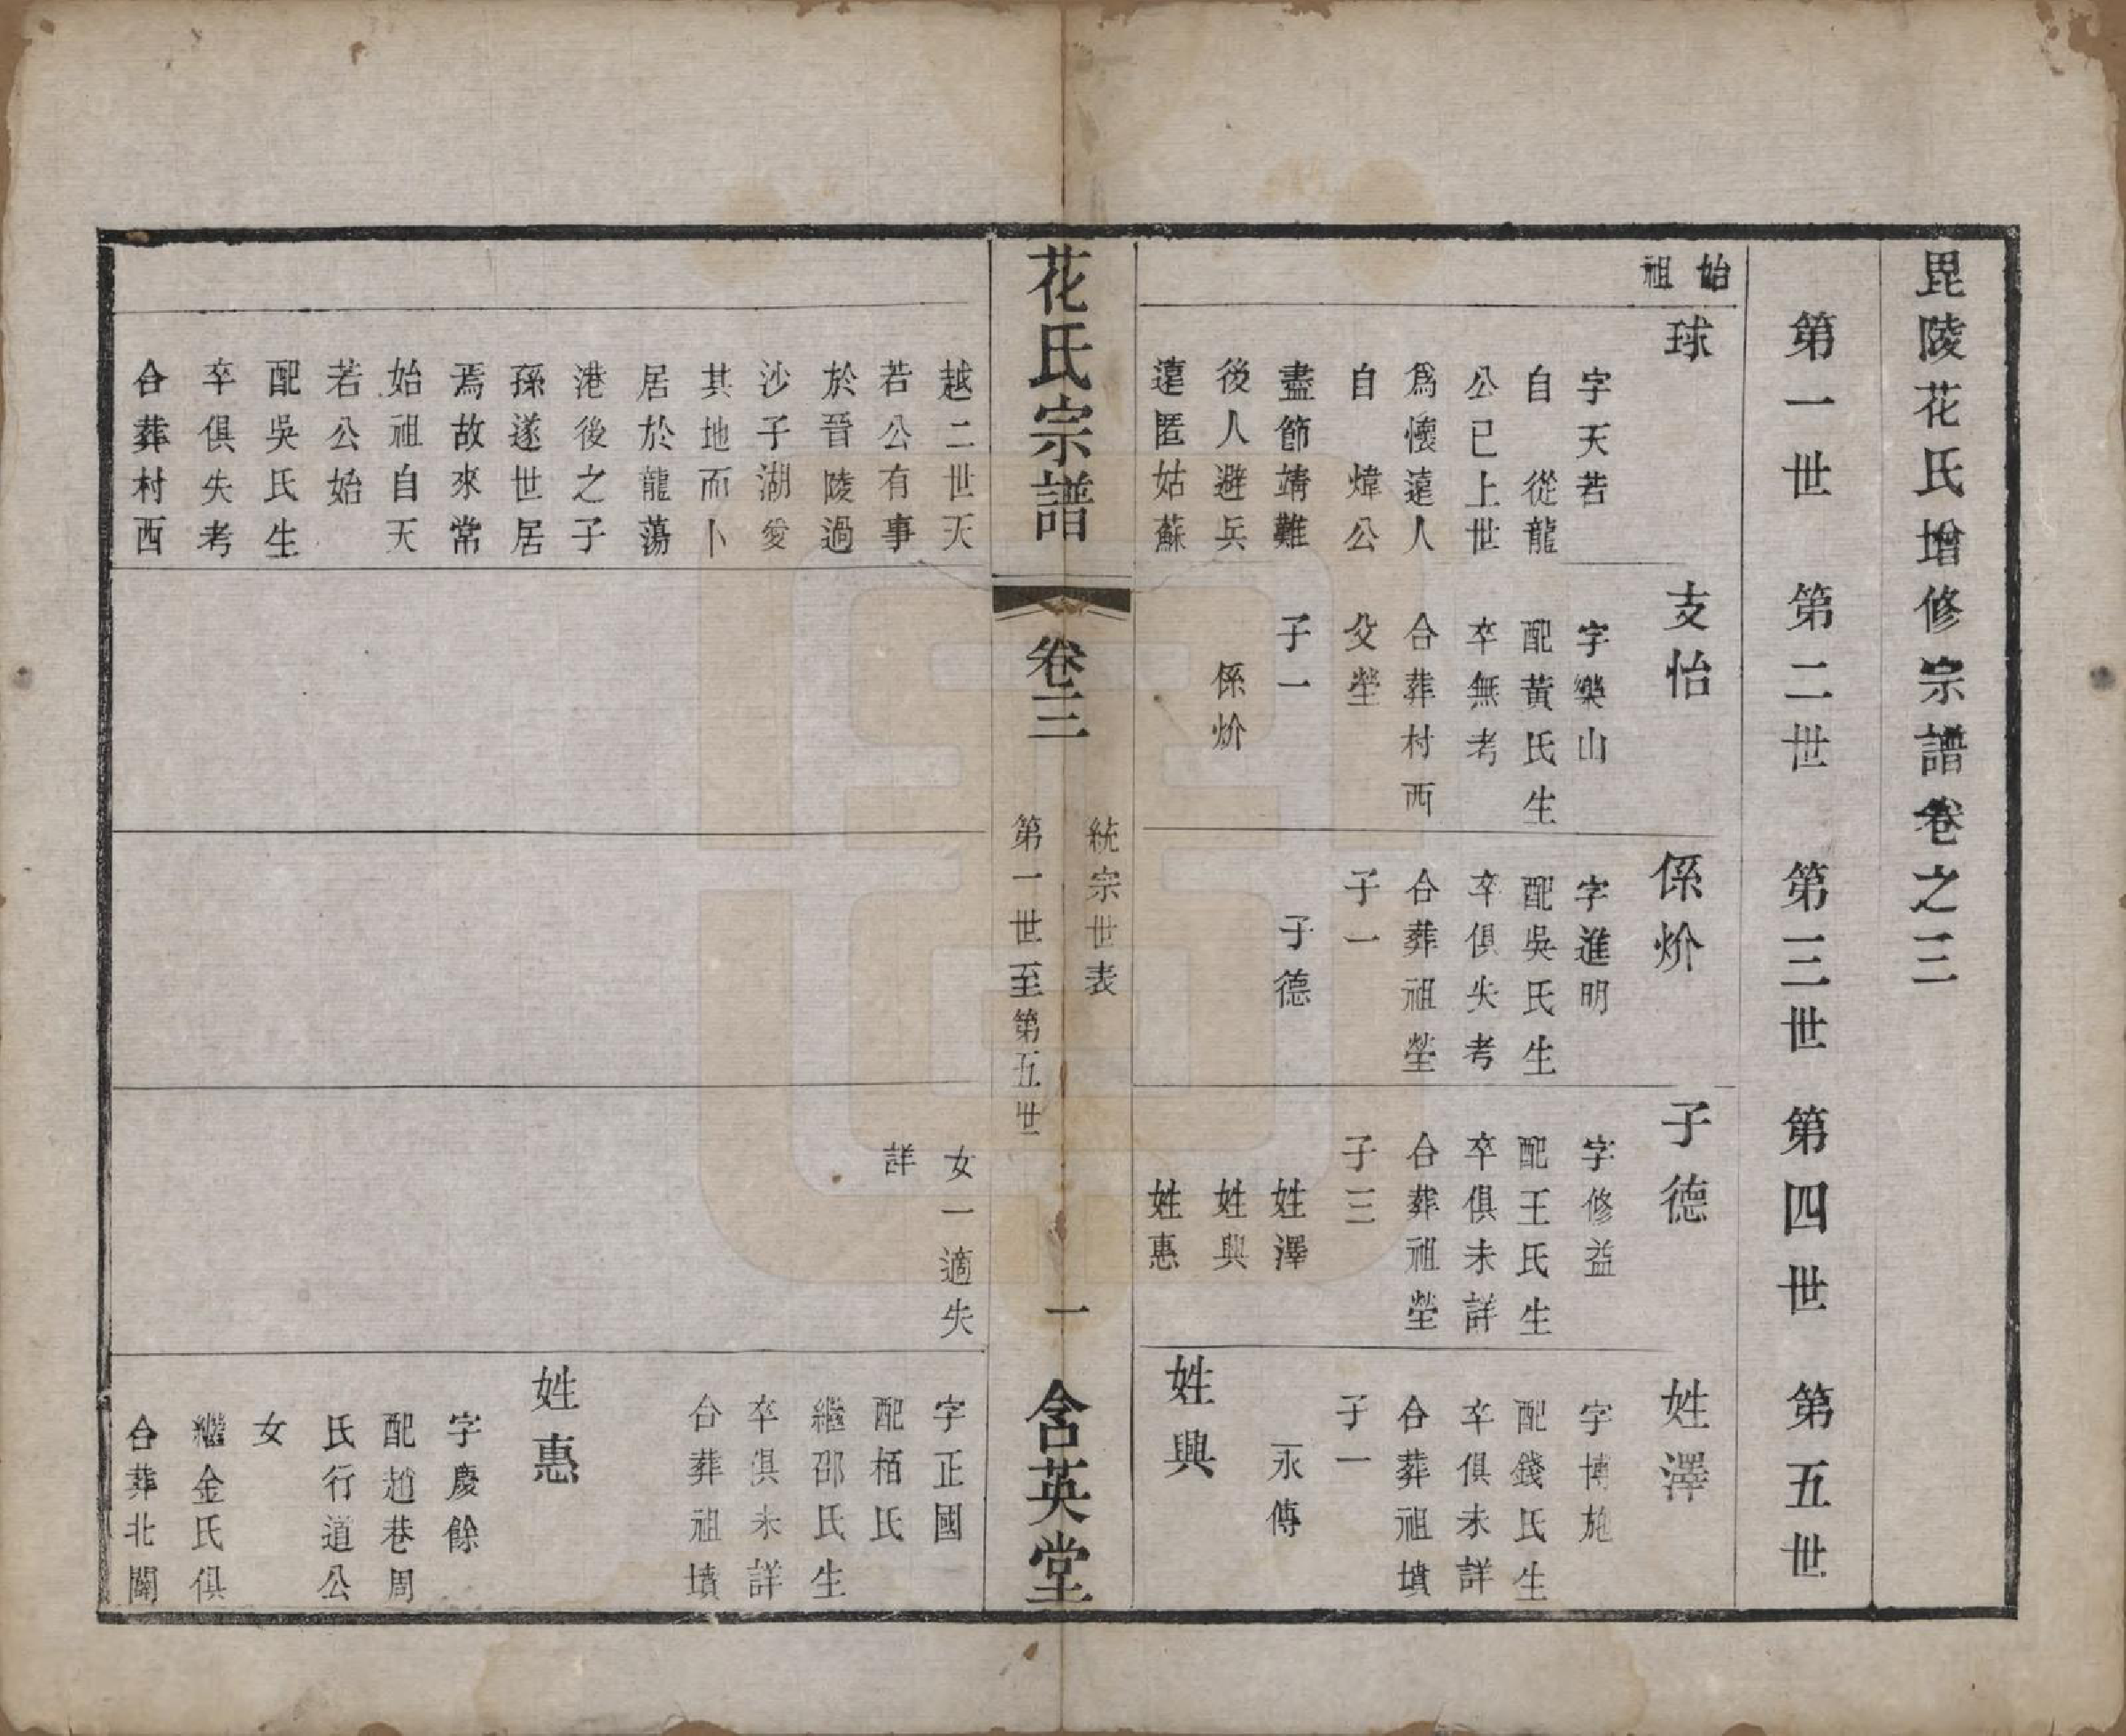 毘陵花氏增修宗譜卷之三
第一世
第二世
第三世
第四世
第五世
始祖
球
字天若
自 從龍
公已上世
爲懷遠人
自 煒公
盡節靖難
後人避兵
遠匿姑蘇
支怡
字樂山
配黃氏生
卒無考
合葬村西
父塋
子一
係炌
係炌
字進明
配吳氏生
卒俱失考
合葬祖塋
子一
子德
子德
字修益
配王氏生
卒俱未詳
合葬祖塋
子三
姓澤
姓興
姓惠
姓澤
字博施
配錢氏生
卒俱未詳
合葬祖墳
子一
永傳
姓興
花氏宗譜
卷三
統宗世表
第一世至第五世
一
含英堂
越二世天
若公有事
於晉陵過
沙子湖愛
其地而卜
居於龍蕩
港後之子
孫遂世居
焉故來常
始祖自天
若公始
配吳氏生
卒俱失考
合葬村西
女一適失
詳
字正國
配栢氏
繼邵氏生
卒俱未詳
合葬祖墳
姓惠
字慶餘
配趙巷周
氏行道公
女
繼金氏俱
合葬北闗